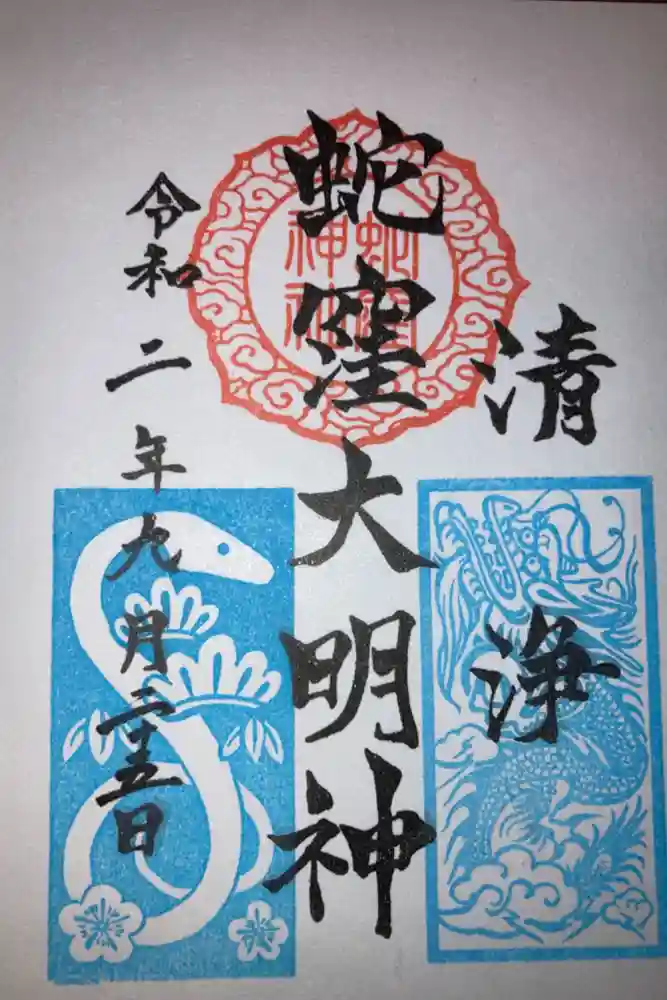 清浄
蛇窪大明神
蛇窪
神社
令和二年九月二十五日